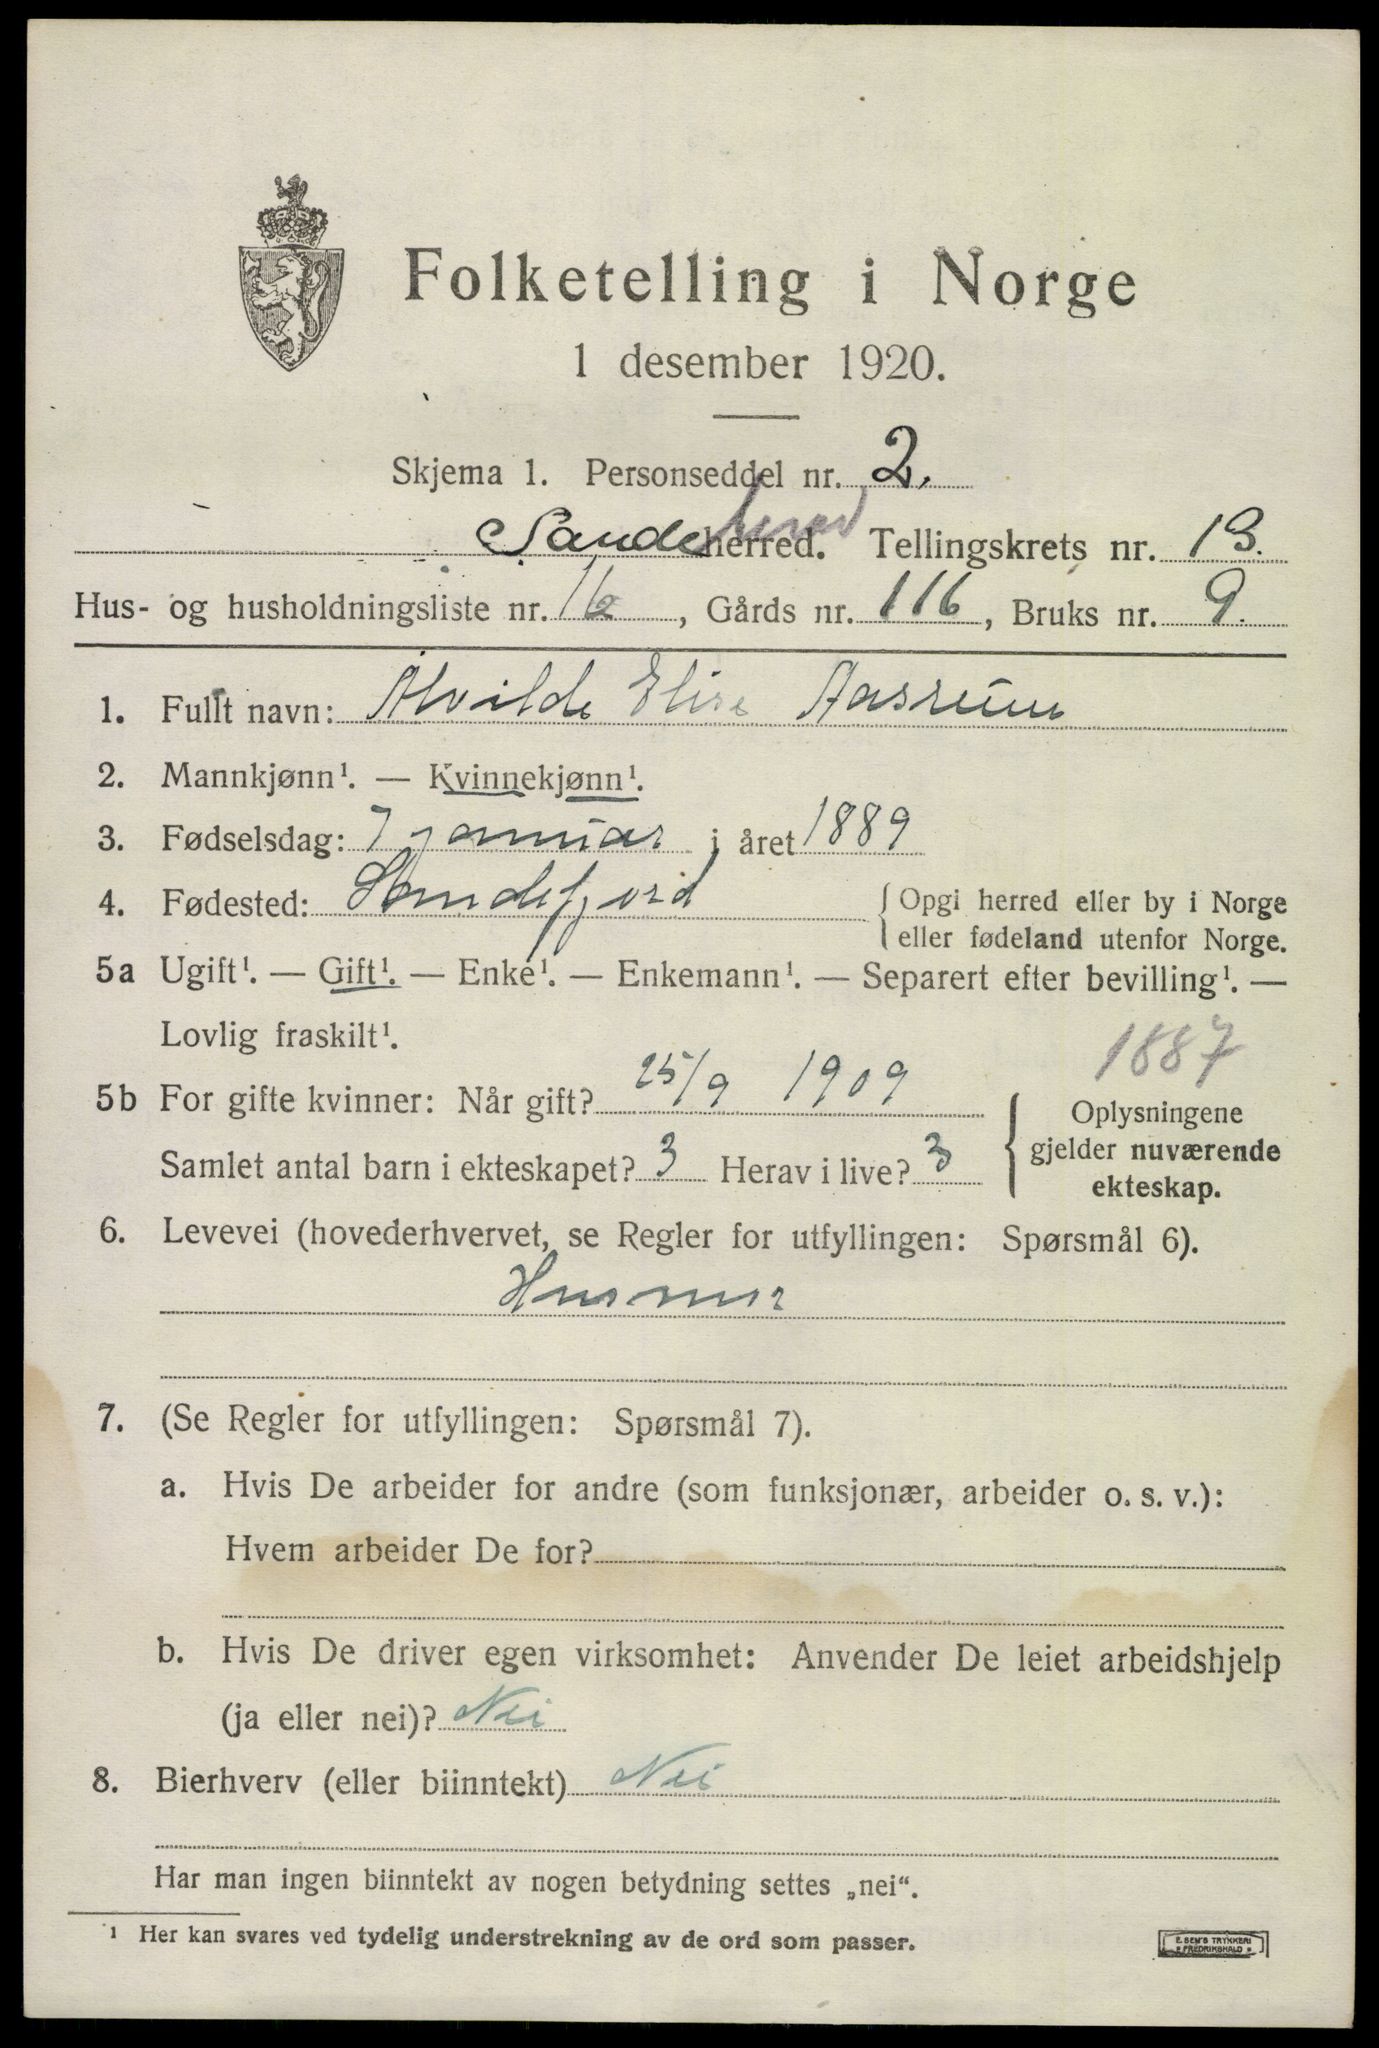 Folketelling i Norge
1 desember 1920.
Skjema 1. Personseddel nr. 2.
Sande herred herred. Tellingskrets nr. 13.
Hus- og husholdningsliste nr. 16, Gårds nr. 116, Bruks nr. 9.
1. Fullt navn: Alvilde Elise Aasrum
2. Mannkjønn¹. — Kvinnekjønn¹.
3. Fødselsdag: 7 januar i året 1889
4. Fødested: Sandefjord { Opgi herred eller by i Norge
eller fødeland utenfor Norge.
5a Ugift¹. — Gift¹. — Enke¹. — Enkemann¹. — Separert efter bevilling¹. —
Lovlig fraskilt¹.
1887
5b For gifte kvinner: Når gift? 25/9 1909
Samlet antal barn i ekteskapet? 3 Herav i live? 3
{ Oplysningene
gjelder nuværende
ekteskap.
6. Levevei (hovederhvervet, se Regler for utfyllingen: Spørsmål 6).
Husmor
7. (Se Regler for utfyllingen: Spørsmål 7).
a. Hvis De arbeider for andre (som funksjonær, arbeider o. s. v.):
Hvem arbeider De for?
b. Hvis De driver egen virksomhet: Anvender De leiet arbeidshjelp
(ja eller nei)? Nei
8. Bierhverv (eller biinntekt) Nei
Har man ingen biinntekt av nogen betydning settes „nei“.
¹ Her kan svares ved tydelig understrekning av de ord som passer.
E. SEM'S TRYKKERI
* FREDRIKSHALD *